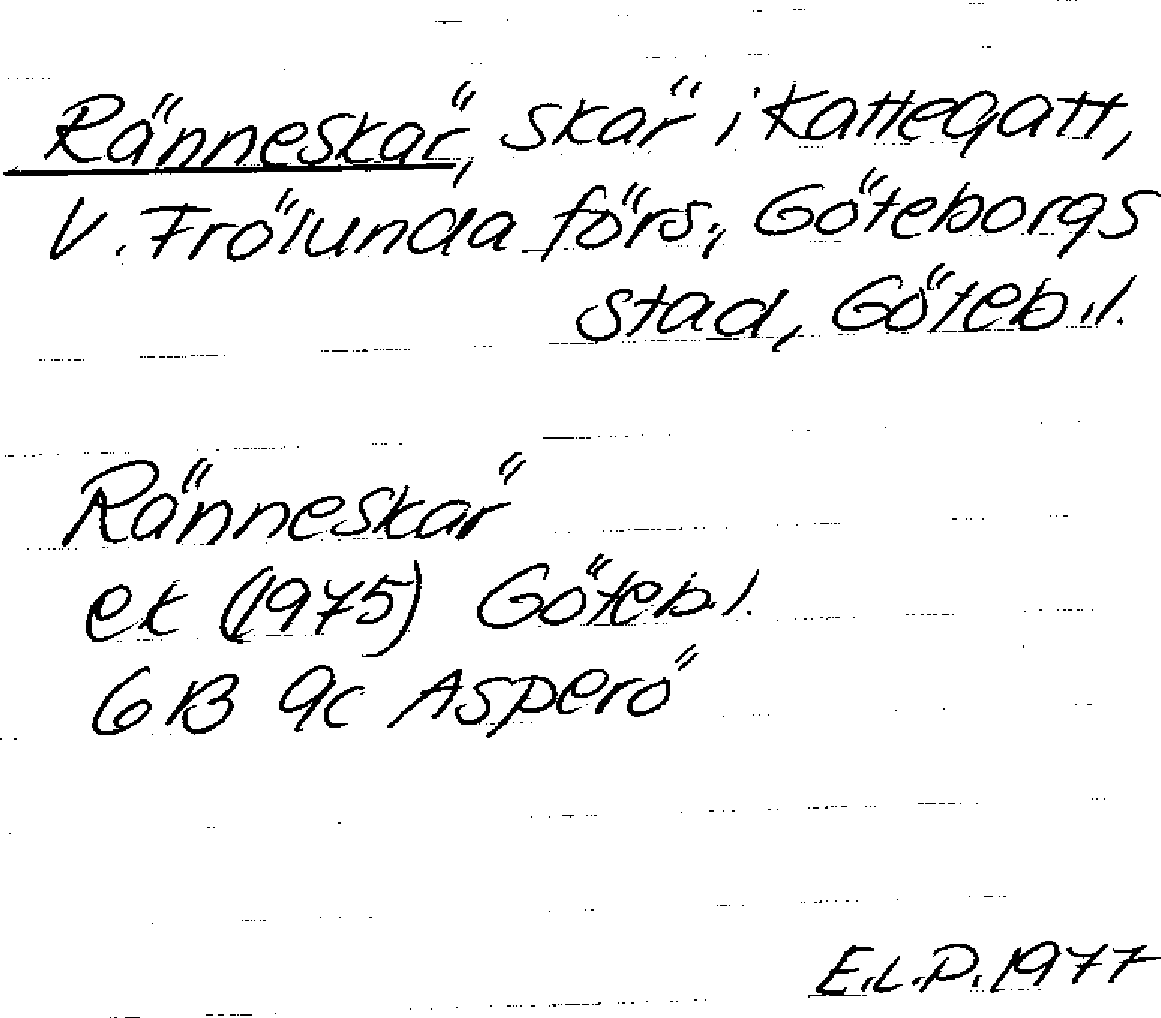 Ränneskär, skär i Kattegatt,
V. Frölunda förs., Göteborgs
stad, Göteb. l.
Ränneskär
ek (1975) Göteb. l.
6B 9c Asperö
E.L.P. 1977